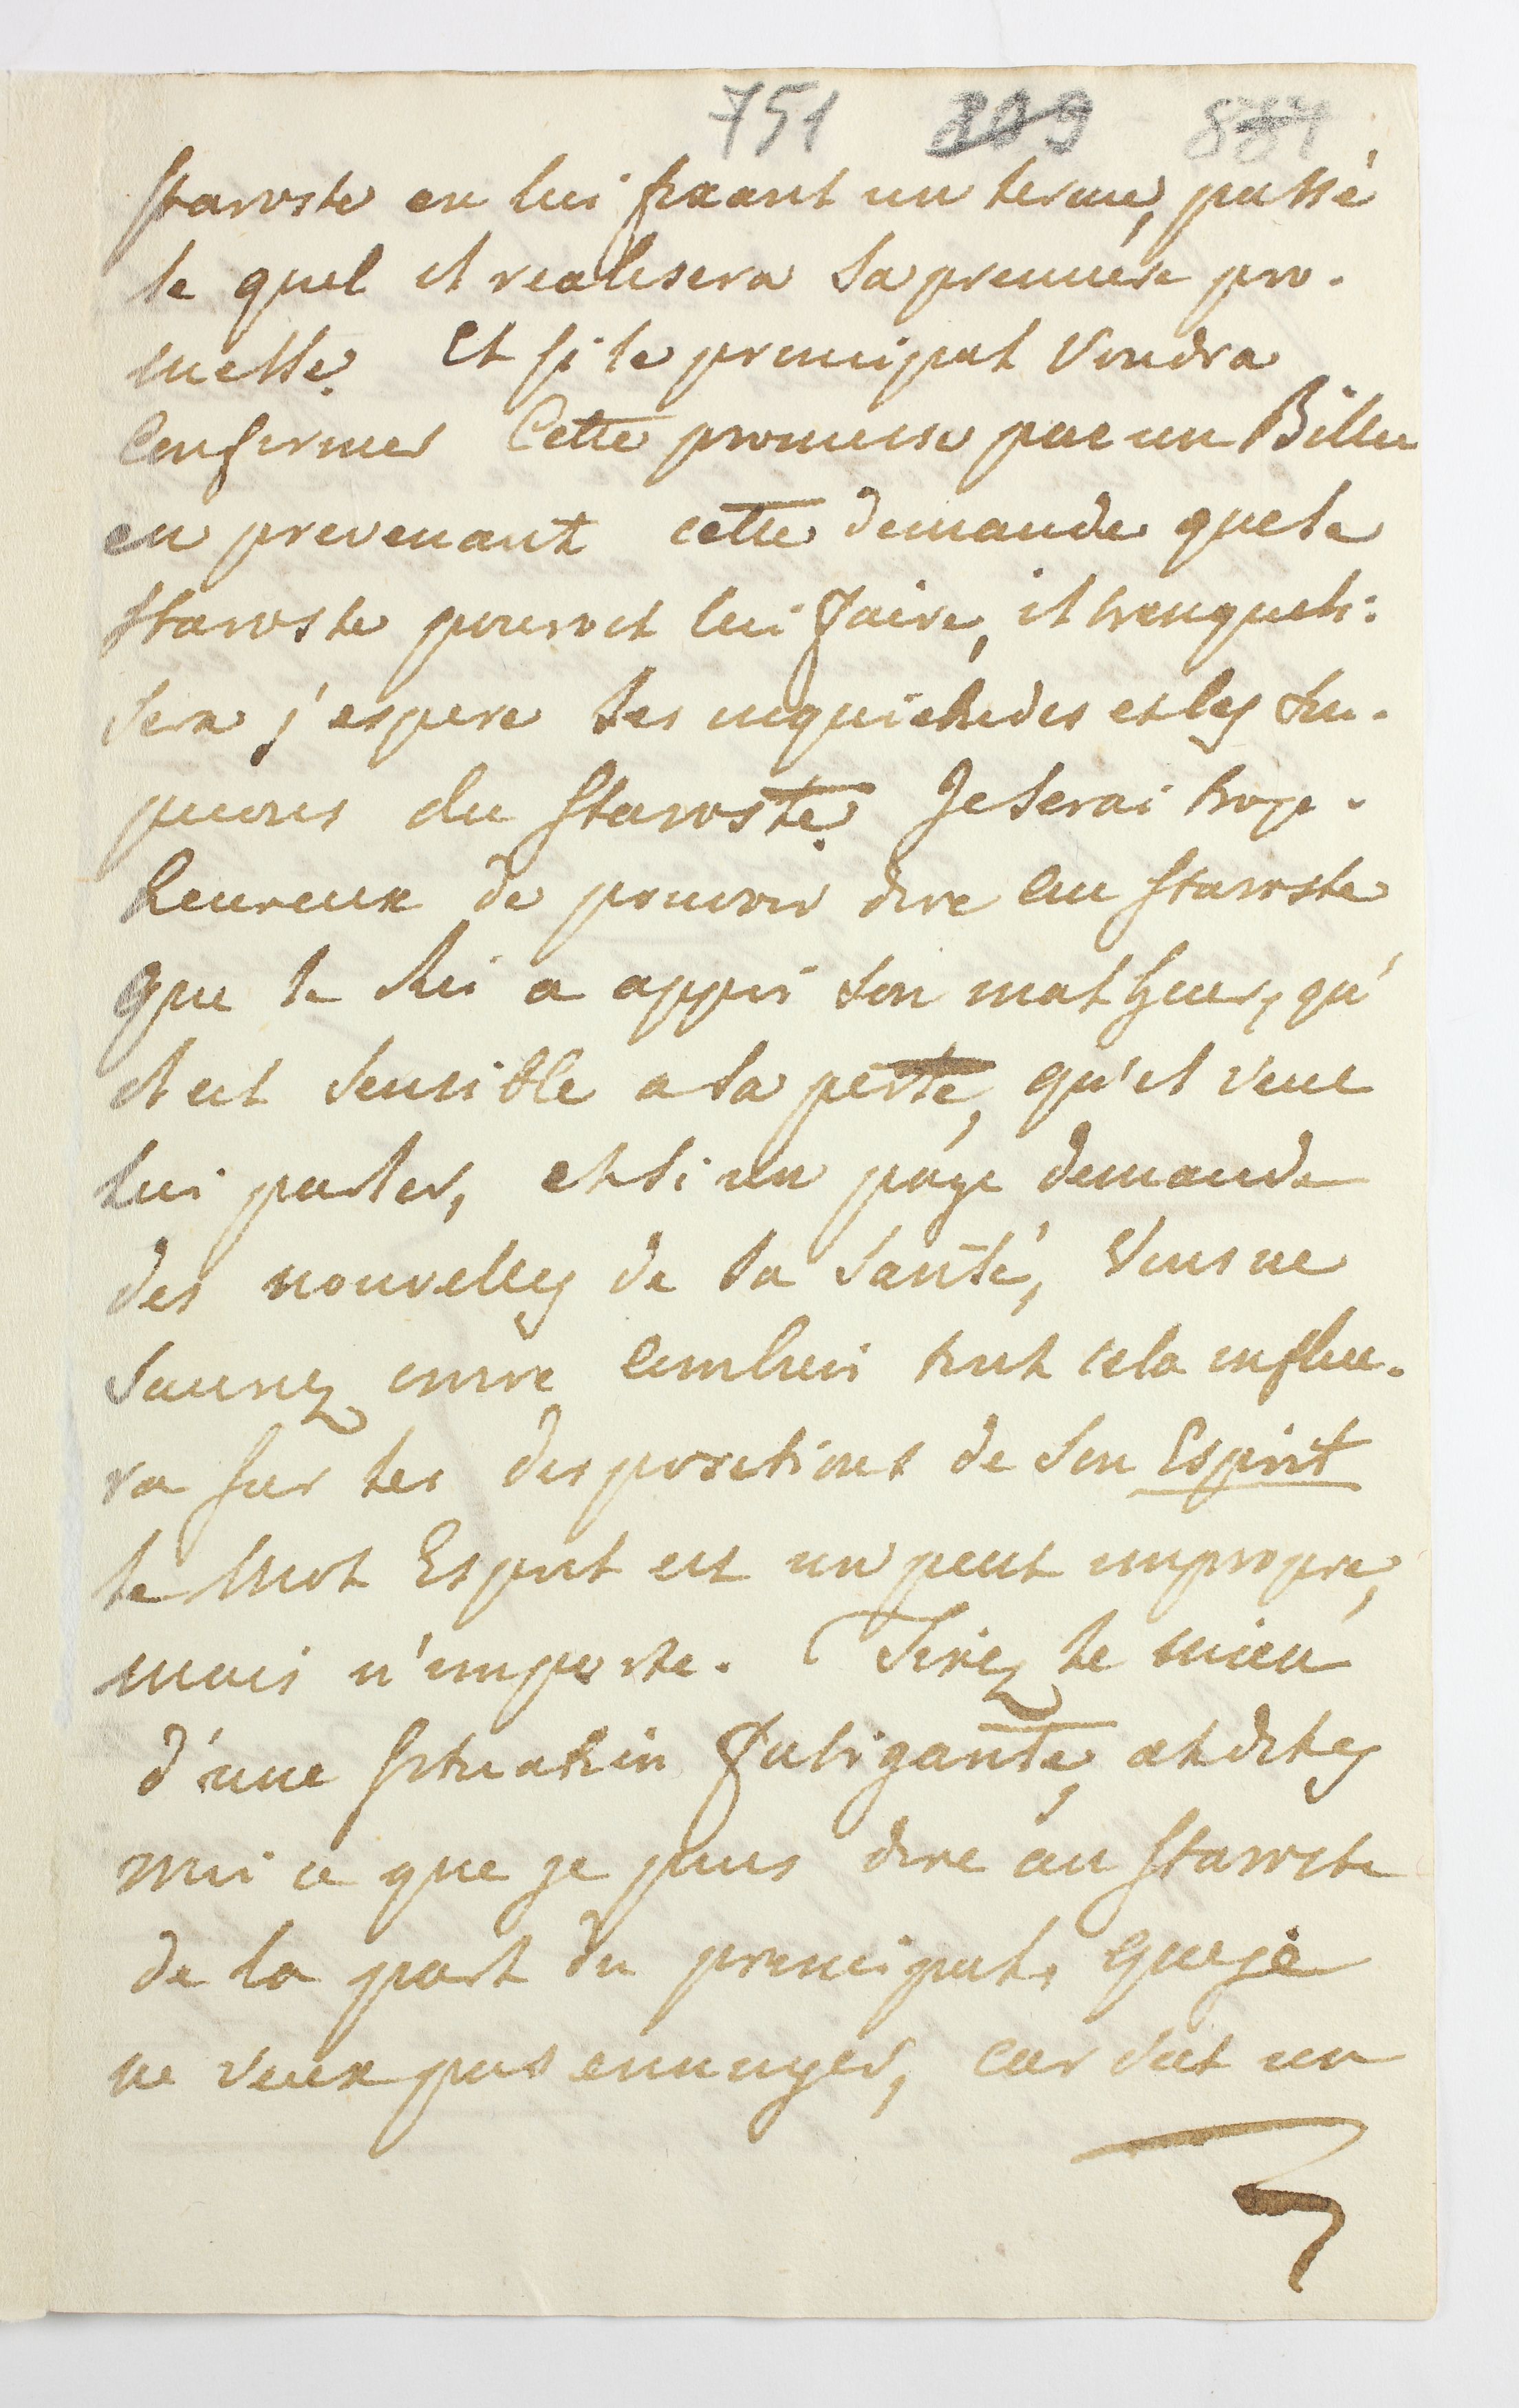 751 209 884
Staroste en lui fixant un terme, passé
le quel il realisera sa premiere pro-
messe. Et si le principal voudra
Confirmer Cette promesse par un Billet
en prevenant cette demande que le
Staroste pouroit lui faire, il tranquili:
sera j'espere les inquietudes et les
du Staroste. Je serai trop
heureux de pouvoir dire au Staroste
que le Roi a appris son malheur, qu'
il est sensible a sa perte, qu'il veut
lui parler, et si un page demande
des nouvelles de sa santé, Vous ne
sauriez croire combien tout cela influe-
ra sur les dispositions de son Esprit
le mot Esprit est un peut impropre,
mais n'importe. Tirez le mieu
d'une situation fatigante, et dites
moi ce que je puis dire au Staroste
de la part du principal, que je
ne veux pas ennuyer, car un